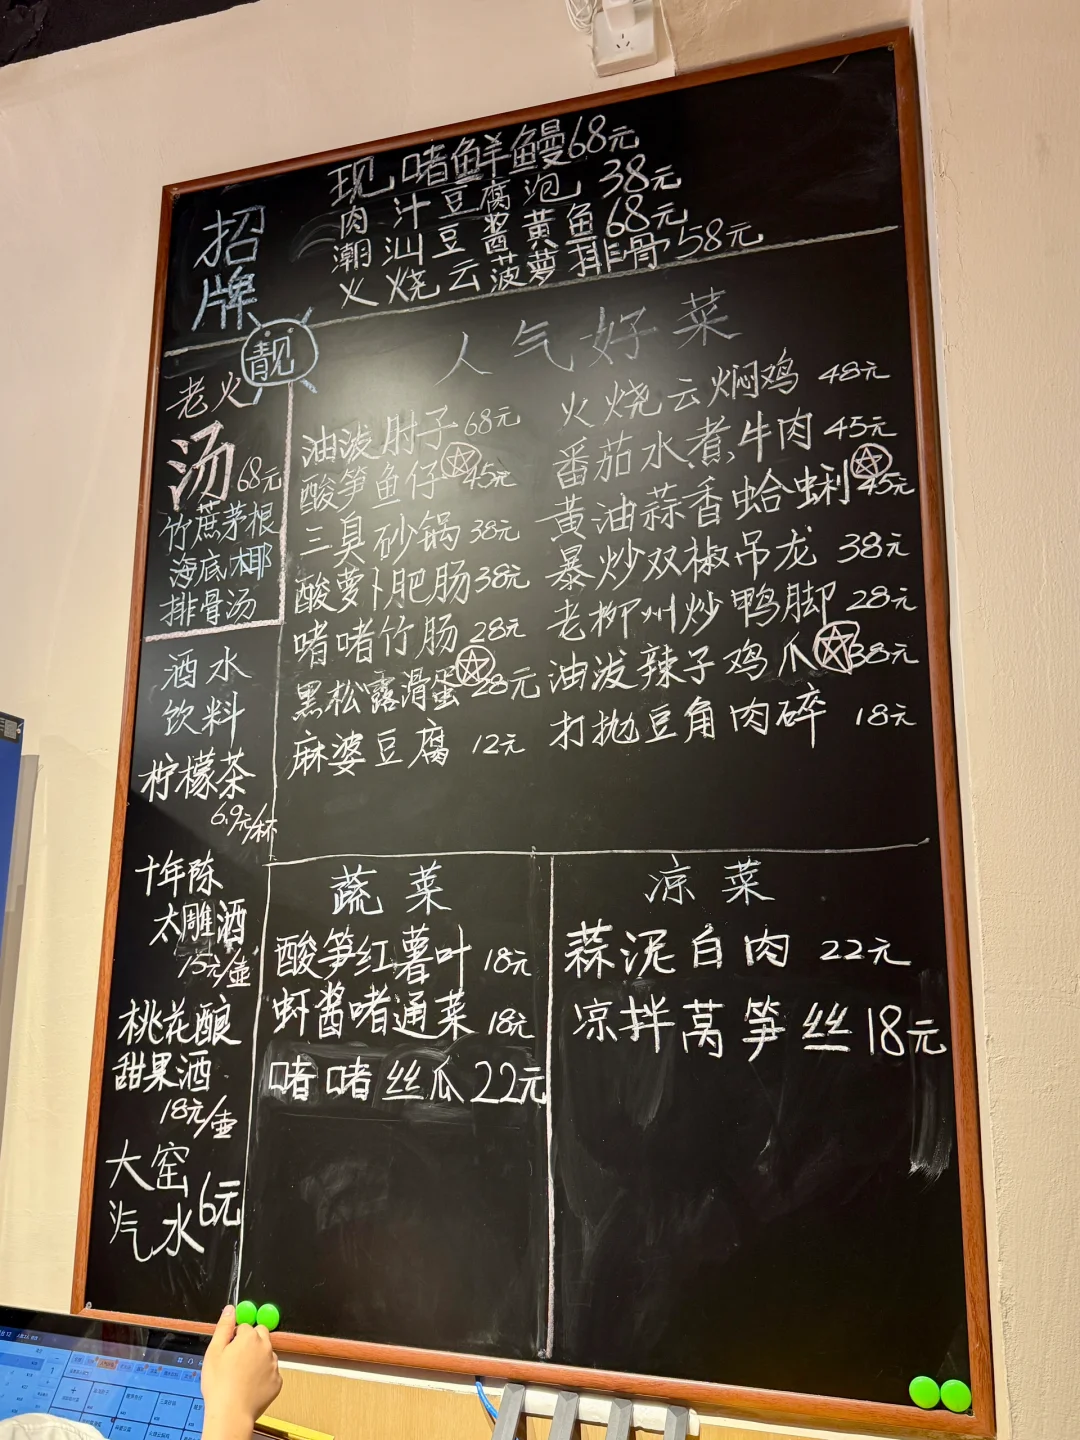 招牌
现啫鲜鳗68元
肉汁豆腐泡 38元
潮汕豆酱黄鱼68元
火烧云菠萝排骨58元
靓
老火
汤 68元
竹蔗茅根
海底椰
排骨汤
酒水
饮料
柠檬茶
6.9元/杯
十年陈
太雕酒
15元/壶
桃花酿
甜果酒
18元/壶
大窑
汽水 6元
人气好菜
油泼肘子 68元
酸笋鱼仔 45元
三臭砂锅 38元
酸萝卜肥肠 38元
啫啫竹肠 28元
黑松露滑蛋 28元
麻婆豆腐 12元
火烧云焖鸡 48元
番茄水煮牛肉 45元
黄油蒜香蛤蜊 45元
暴炒双椒吊龙 38元
老柳州炒鸭脚 28元
油泼辣子鸡爪 38元
打抛豆角肉碎 18元
蔬菜
酸笋红薯叶 18元
虾酱啫通菜 18元
啫啫丝瓜 22元
凉菜
蒜泥白肉 22元
凉拌莴笋丝 18元